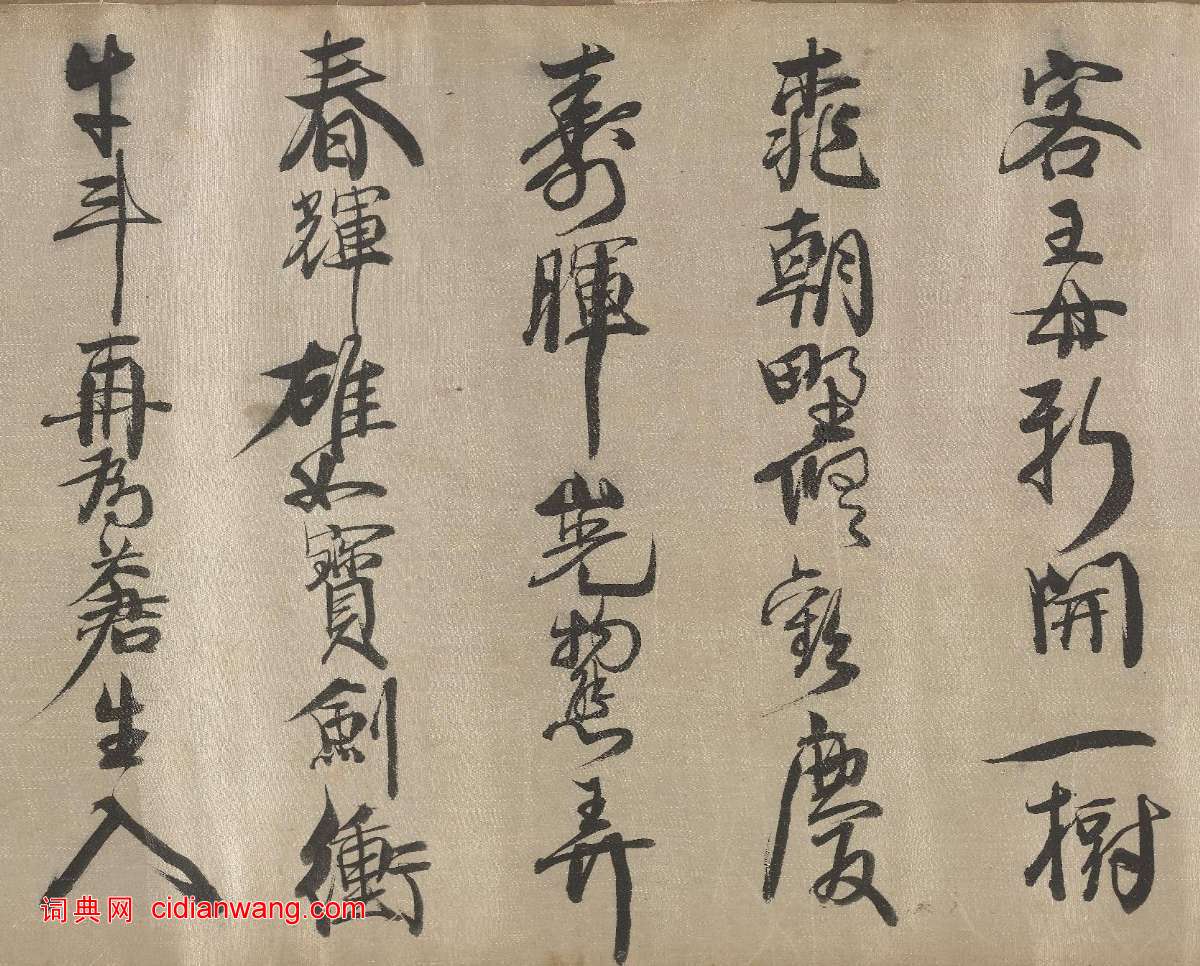 客王母新開一樹
桃朝野歡慶
壽暉光物態弄
春輝雄如寶劍衝
牛斗再為蒼生入
词典网 cidianwang.com